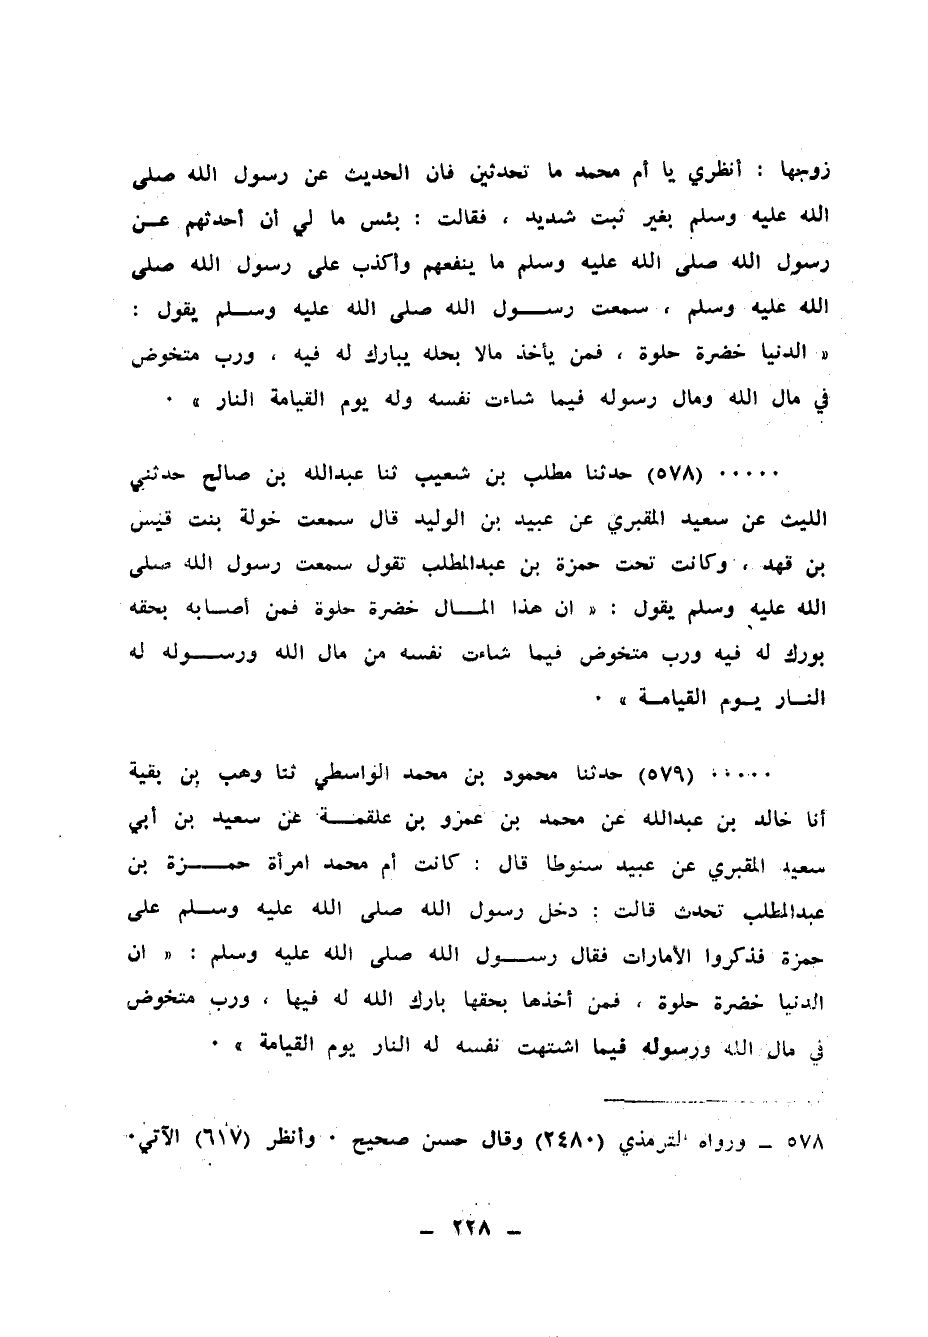 زوجها : أنظري يا أم محمد ما تحدثين فان الحديث عن رسول الله صلى
الله عليه وسلم بغير ثبت شديد ، فقالت : بئس ما لي أن أحدثهم عـن
رسول الله صلى الله عليه وسلم ما ينفعهم وأكذب على رسول الله صلى
الله عليه وسلم ، سمعت رســول الله صلى الله عليه وســلم يقول :
« الدنيا خضرة حلوة ، فمن يأخذ مالا بحله يبارك له فيه ، ورب متخوض
في مال الله ومال رسوله فيما شاءت نفسه وله يوم القيامة النار » ٠
٠٠٠٠٠ (٥٧٨) حدثنا مطلب بن شعيب ثنا عبدالله بن صالح حدثني
الليث عن سعيد المقبري عن عبيد بن الوليد قال سمعت خولة بنت قيس
بن قهد ، وكانت تحت حمزة بن عبدالمطلب تقول سمعت رسول الله صلى
الله عليه وسلم يقول : « ان هذا المــال خضرة حلوة فمن أصابه بحقه
بورك له فيه ورب متخوض فيما شاءت نفسه من مال الله ورســوله له
النــار يــوم القيامــة » ٠
٠٠٠٠٠ (٥٧٩) حدثنا محمود بن محمد الواسطي ثنا وهب بن بقية
أنا خالد بن عبدالله عن محمد بن عمرو بن علقمــة عن سعيد بن أبي
سعيد المقبري عن عبيد سنوطا قال : كانت أم محمد امرأة حمــزة بن
عبدالمطلب تحدث قالت : دخل رسول الله صلى الله عليه وســلم على
حمزة فذكروا الأمارات فقال رســول الله صلى الله عليه وسلم : « ان
الدنيا خضرة حلوة ، فمن أخذها بحقها بارك الله له فيها ، ورب متخوض
في مال الله ورسوله فيما اشتهت نفسه له النار يوم القيامة » ٠
٥٧٨ ـ ورواه الترمذي (٢٤٨٠) وقال حسن صحيح ٠ وأنظر (٦١٧) الآتي٠
ـ ٢٢٨ ـ